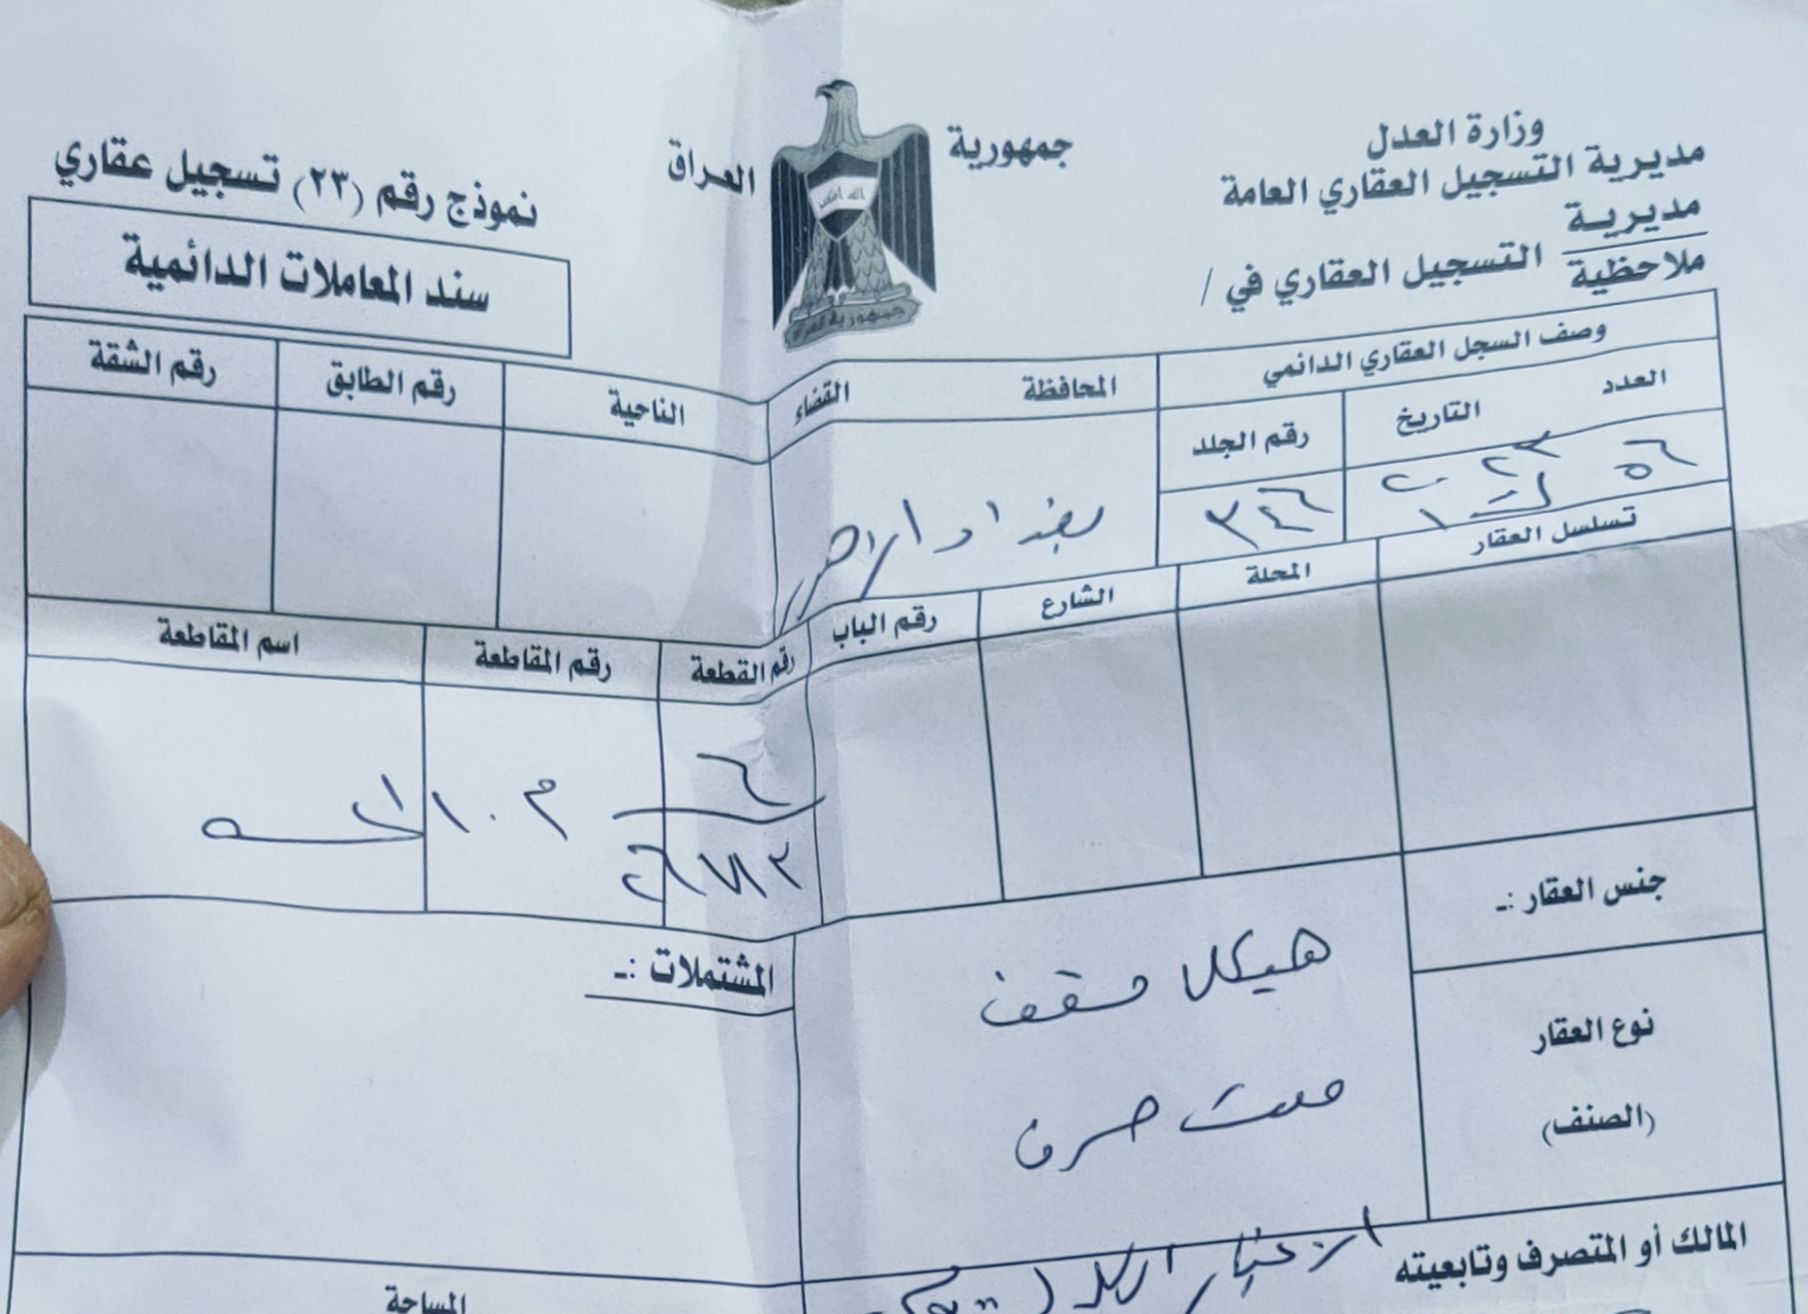 وزارة العدل
مديرية التسجيل العقاري العامة
مديرية
ملاحظية
التسجيل العقاري في /
جمهورية
العراق
نموذج رقم (٢٣) تسجيل عقاري
سند المعاملات الدائمية
وصف السجل العقاري الدائمي
العدد التاريخ رقم الجلد
٥٦ ٣٤٦
المحافظة القضاء الناحية رقم الطابق رقم الشقة
بغداد
تسلسل العقار المحلة الشارع رقم الباب رقم القطعة رقم المقاطعة اسم المقاطعة
٦
م ١٠
جنس العقار :ـ
هيكل مسقف
المشتملات :ـ
نوع العقار
(الصنف)
ملك صرف
المالك أو المتصرف وتابعيته
المساحة